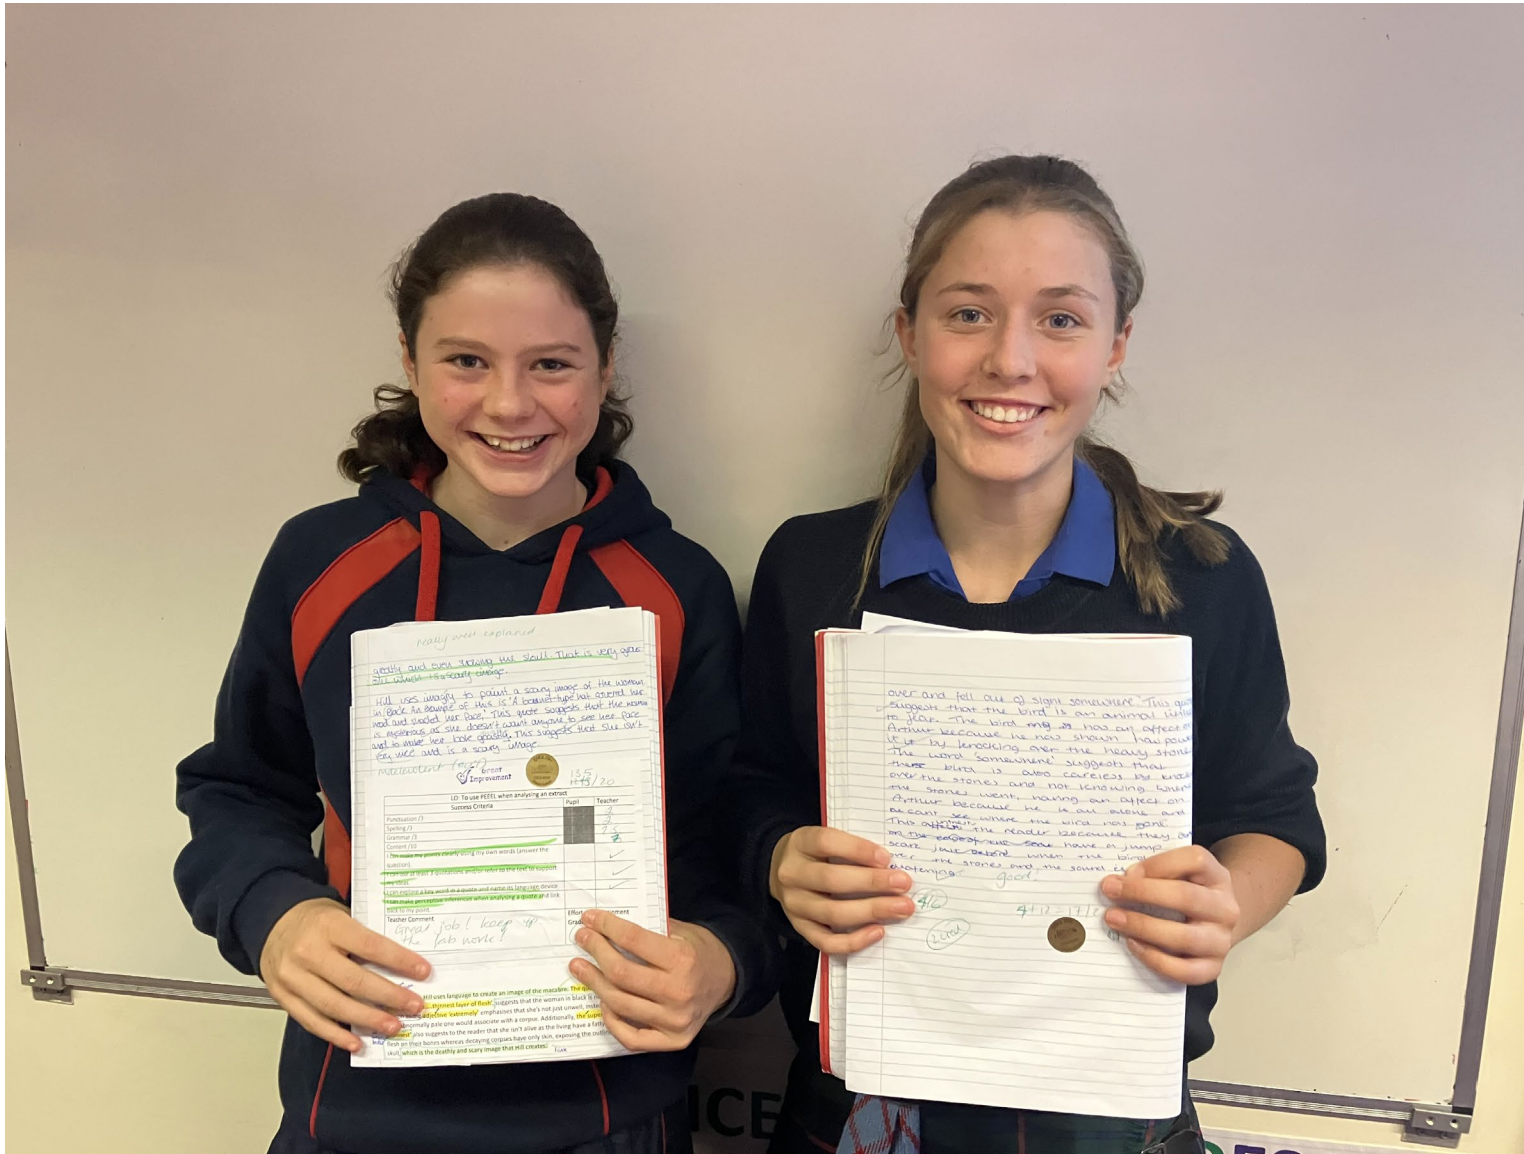 really well explained
greatly and even showing the skull. That is very
which is a scary image.
Hill uses imagry to paint a scary image of the woman
in Black. An Example of this is 'A bonnet-type hat covered her
head and shaded her face'. This quote suggests that the woman
is mysterious as she doesn't want anyone to see her face
and to make her look ghostly. This suggests that she isn't
very nice and is a scary image.
Malevolent
Great
Improvement
13.5
/20
LO: To use PEEEL when analysing an extract
Success Criteria
Pupil
Teacher
Punctuation /3
2
Spelling /3
2
Grammar /3
Content /10
7
I can make my points clearly using my own words (answer the
question).
I can use at least 3 quotations and/or refer to the text to support
my ideas.
I can explore a key word in a quote and name its language device
I can make perceptive inferences when analysing a quote and link
back to my point.
Teacher Comment
Effort
Grade
Great job! keep up
the fab work!
Hill uses language to create an image of the macabre. The
thinnest layer of flesh', suggests that the woman in black is
adjective 'extremely' emphasises that she's not just unwell,
abnormally pale one would associate with a corpse. Additionally, the
also suggests to the reader that she isn't alive as the living have a fatty
flesh on their bones whereas decaying corpses have only skin, exposing the
skull, which is the deathly and scary image that Hill creates.
over and fell out of sight somewhere' This
suggests that the bird is an animal
to fear. The bird has an affect on
Arthur because he has shown how
it is by knocking over the heavy stone
The word 'somewhere' suggests that
bird is also careless by
over the stones and not knowing where
the stones went, having an affect on
Arthur because he is all alone and
cant see where the bird has gone
This the reader because they
scare just when the bird
over the stones and the sound
good!
4/6
2 cred
4+12
ICE